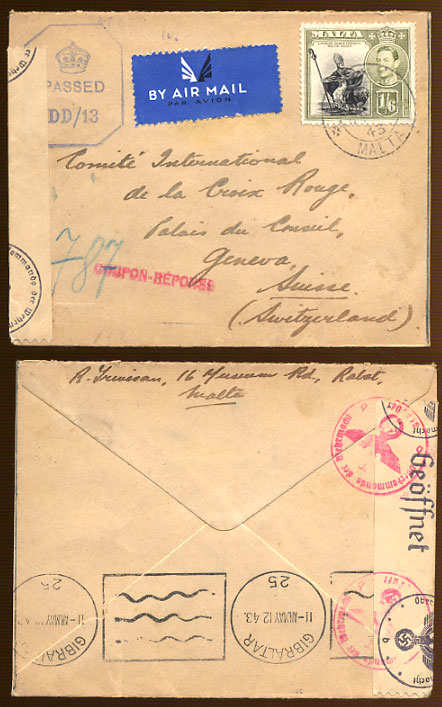 PASSED
DD/13
BY AIR MAIL
PAR AVION
MALTA
1/6
43
MALTA
Comité International
de la Croix Rouge,
Palais du Conseil,
Geneva,
Suisse.
(Switzerland)
787
COUPON-RÉPONSE
R. Trevisan, 16 Museum Rd, Rabat,
Malta
Geöffnet
GIBRALTAR
11-AM MAY 12 43
25
GIBRALTAR
11-AM MAY 12 43
25
b